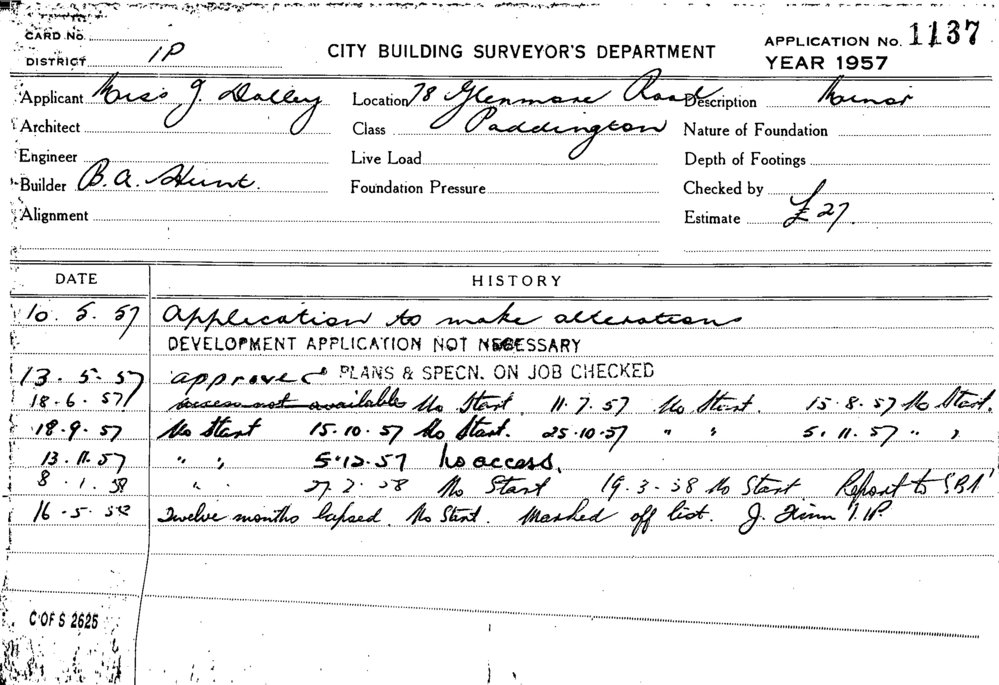 CARD No.
DISTRICT 1P
CITY BUILDING SURVEYOR'S DEPARTMENT
APPLICATION No. 1137
YEAR 1957
Applicant Miss J. Dalley Location 78 Glenmore Road Description Minor
Architect Class Paddington Nature of Foundation
Engineer Live Load Depth of Footings
Builder B.A. Hunt. Foundation Pressure Checked by
Alignment Estimate £27.
DATE HISTORY
10. 5. 57 Application to make alterations
DEVELOPMENT APPLICATION NOT NECESSARY
13. 5. 57 approved PLANS & SPECN. ON JOB CHECKED
18.6. 57 access not available No Start. 11.7.57 No Start. 15.8.57 No Start.
18.9.57 No Start 15.10.57 No Start. 25.10.57 " " 5.11.57 " "
13.11.57 " " 5.12.57 No access.
8.1.58 " " 27.2.58 No Start 19.3.58 No Start. Report to SBI
16.5.58 Twelve months lapsed. No Start. Marked off list. J. 1P.
C OF S 2625